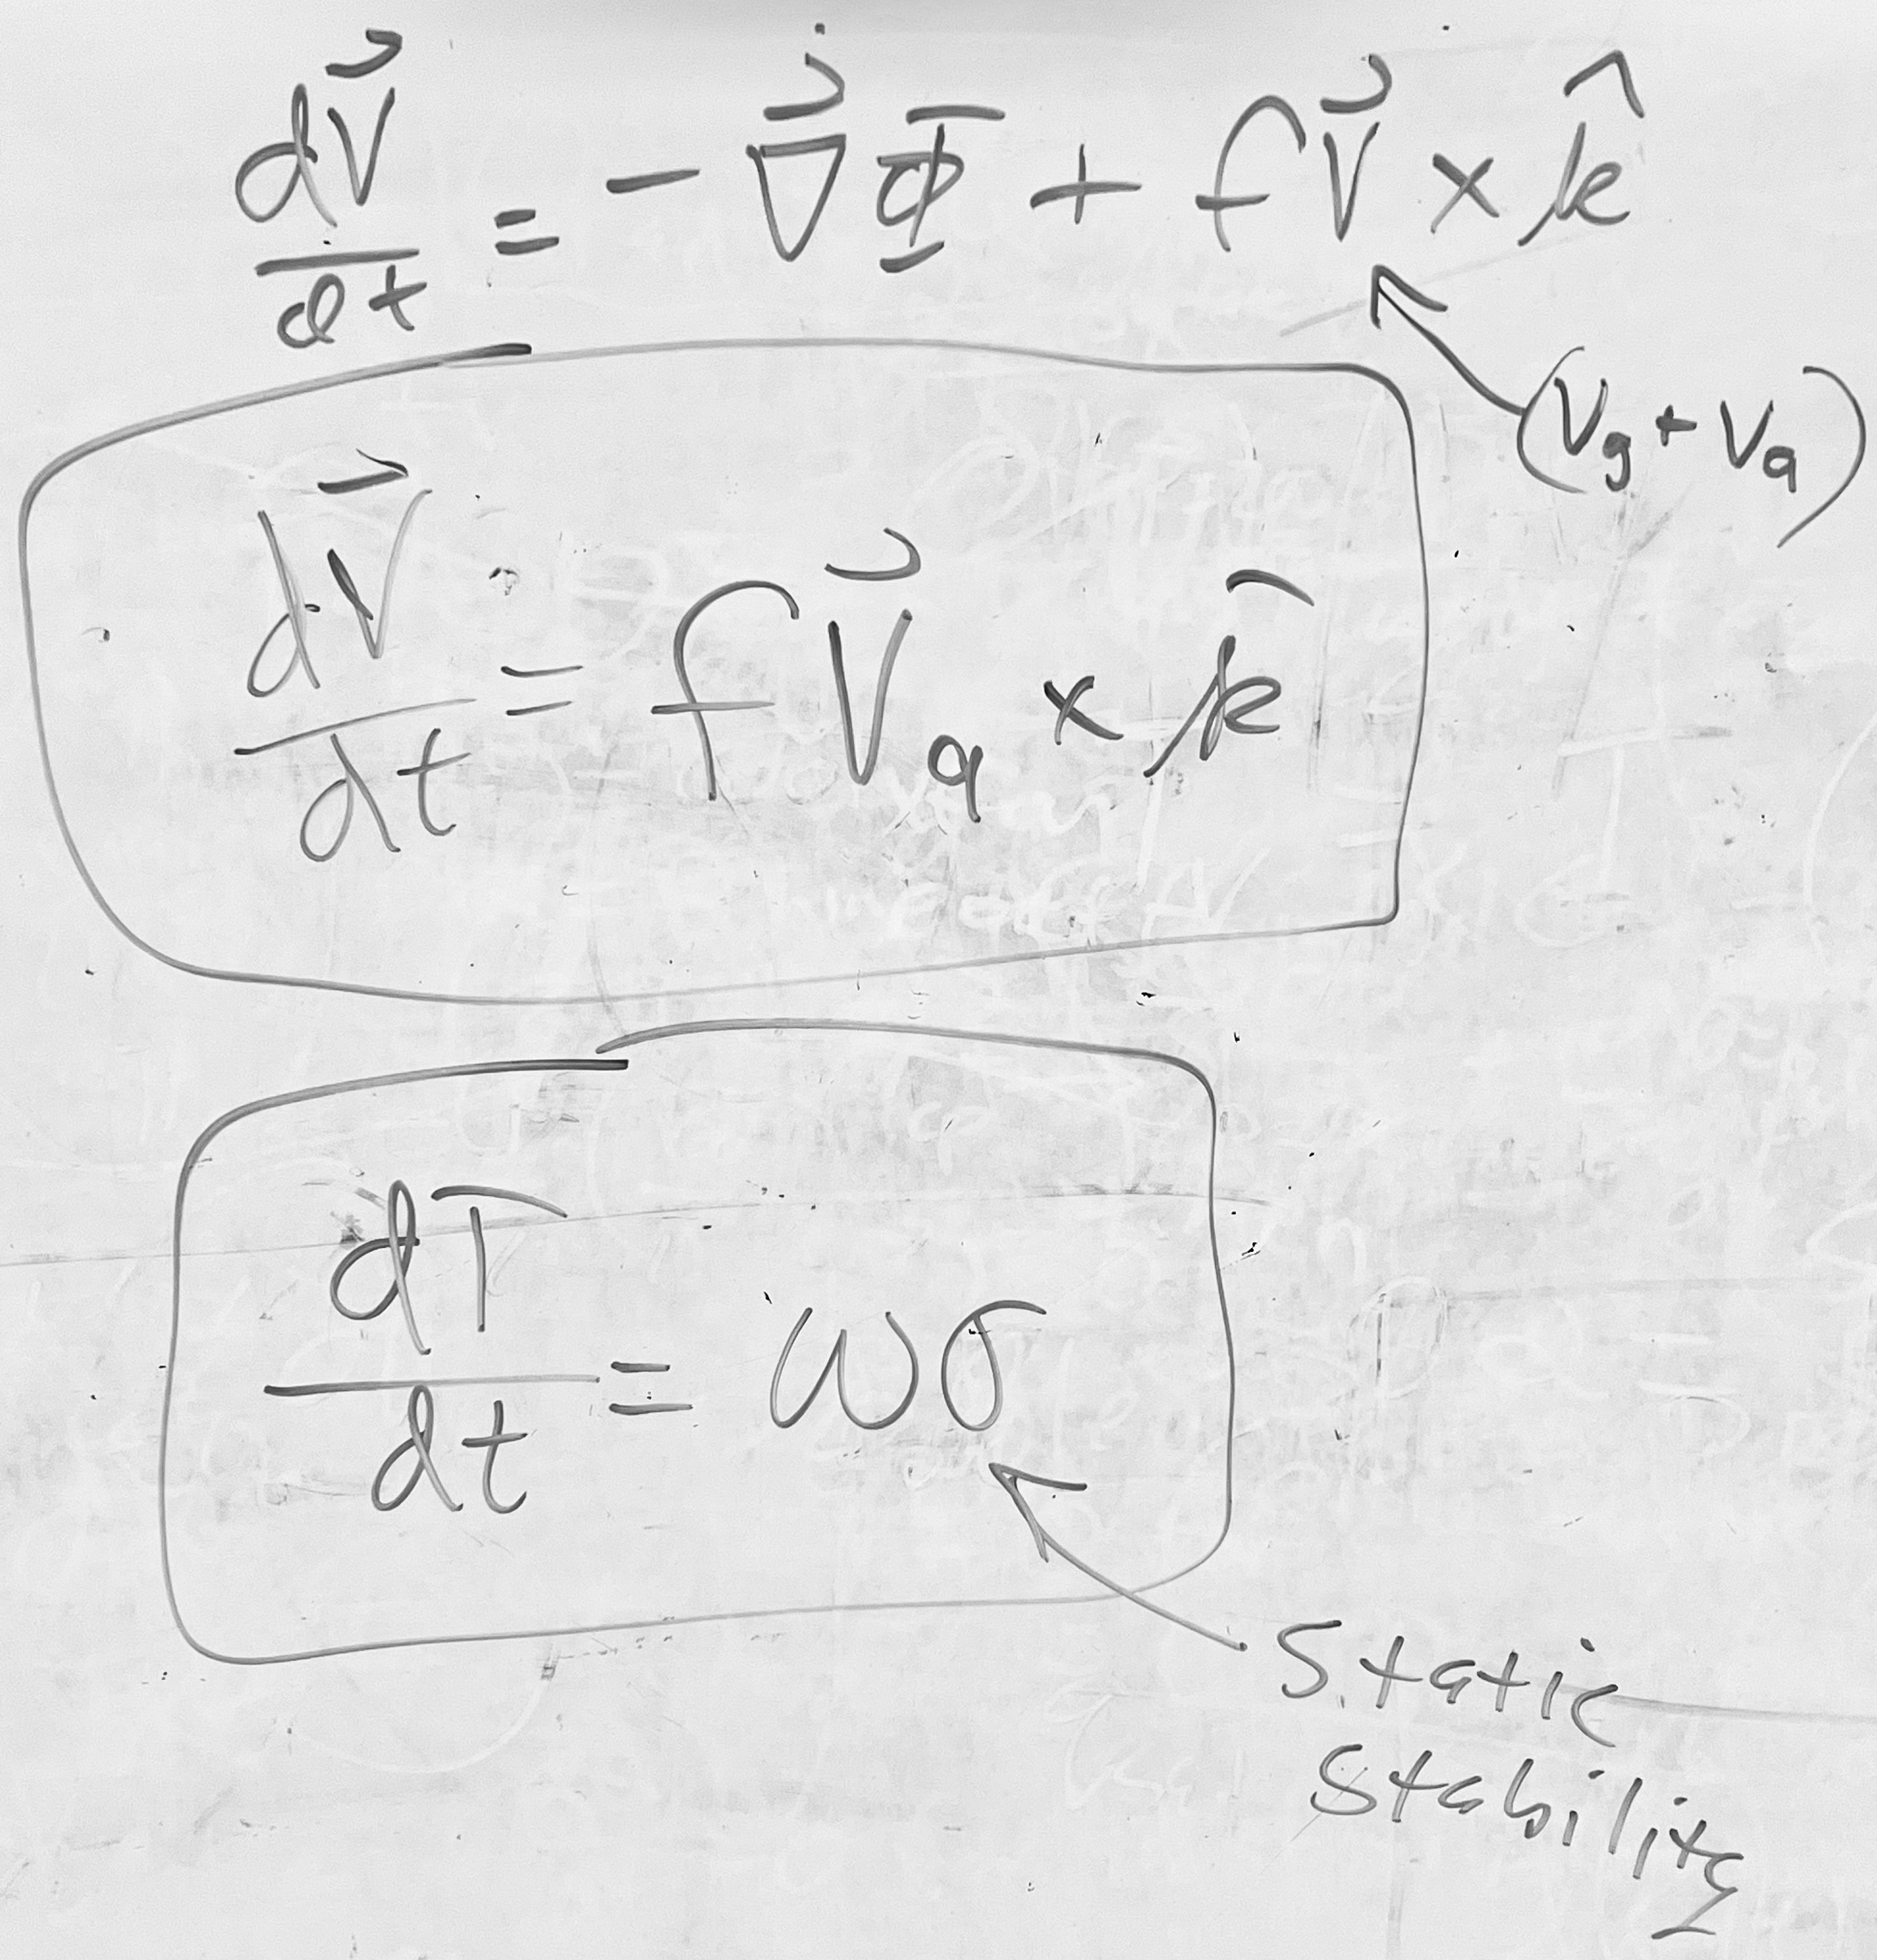 dV⃗/dt = - ∇⃗Φ + fV⃗ × k̂
(Vg + Va)
dV⃗/dt = fV⃗a × k̂
dT/dt = ωσ
Static
Stability